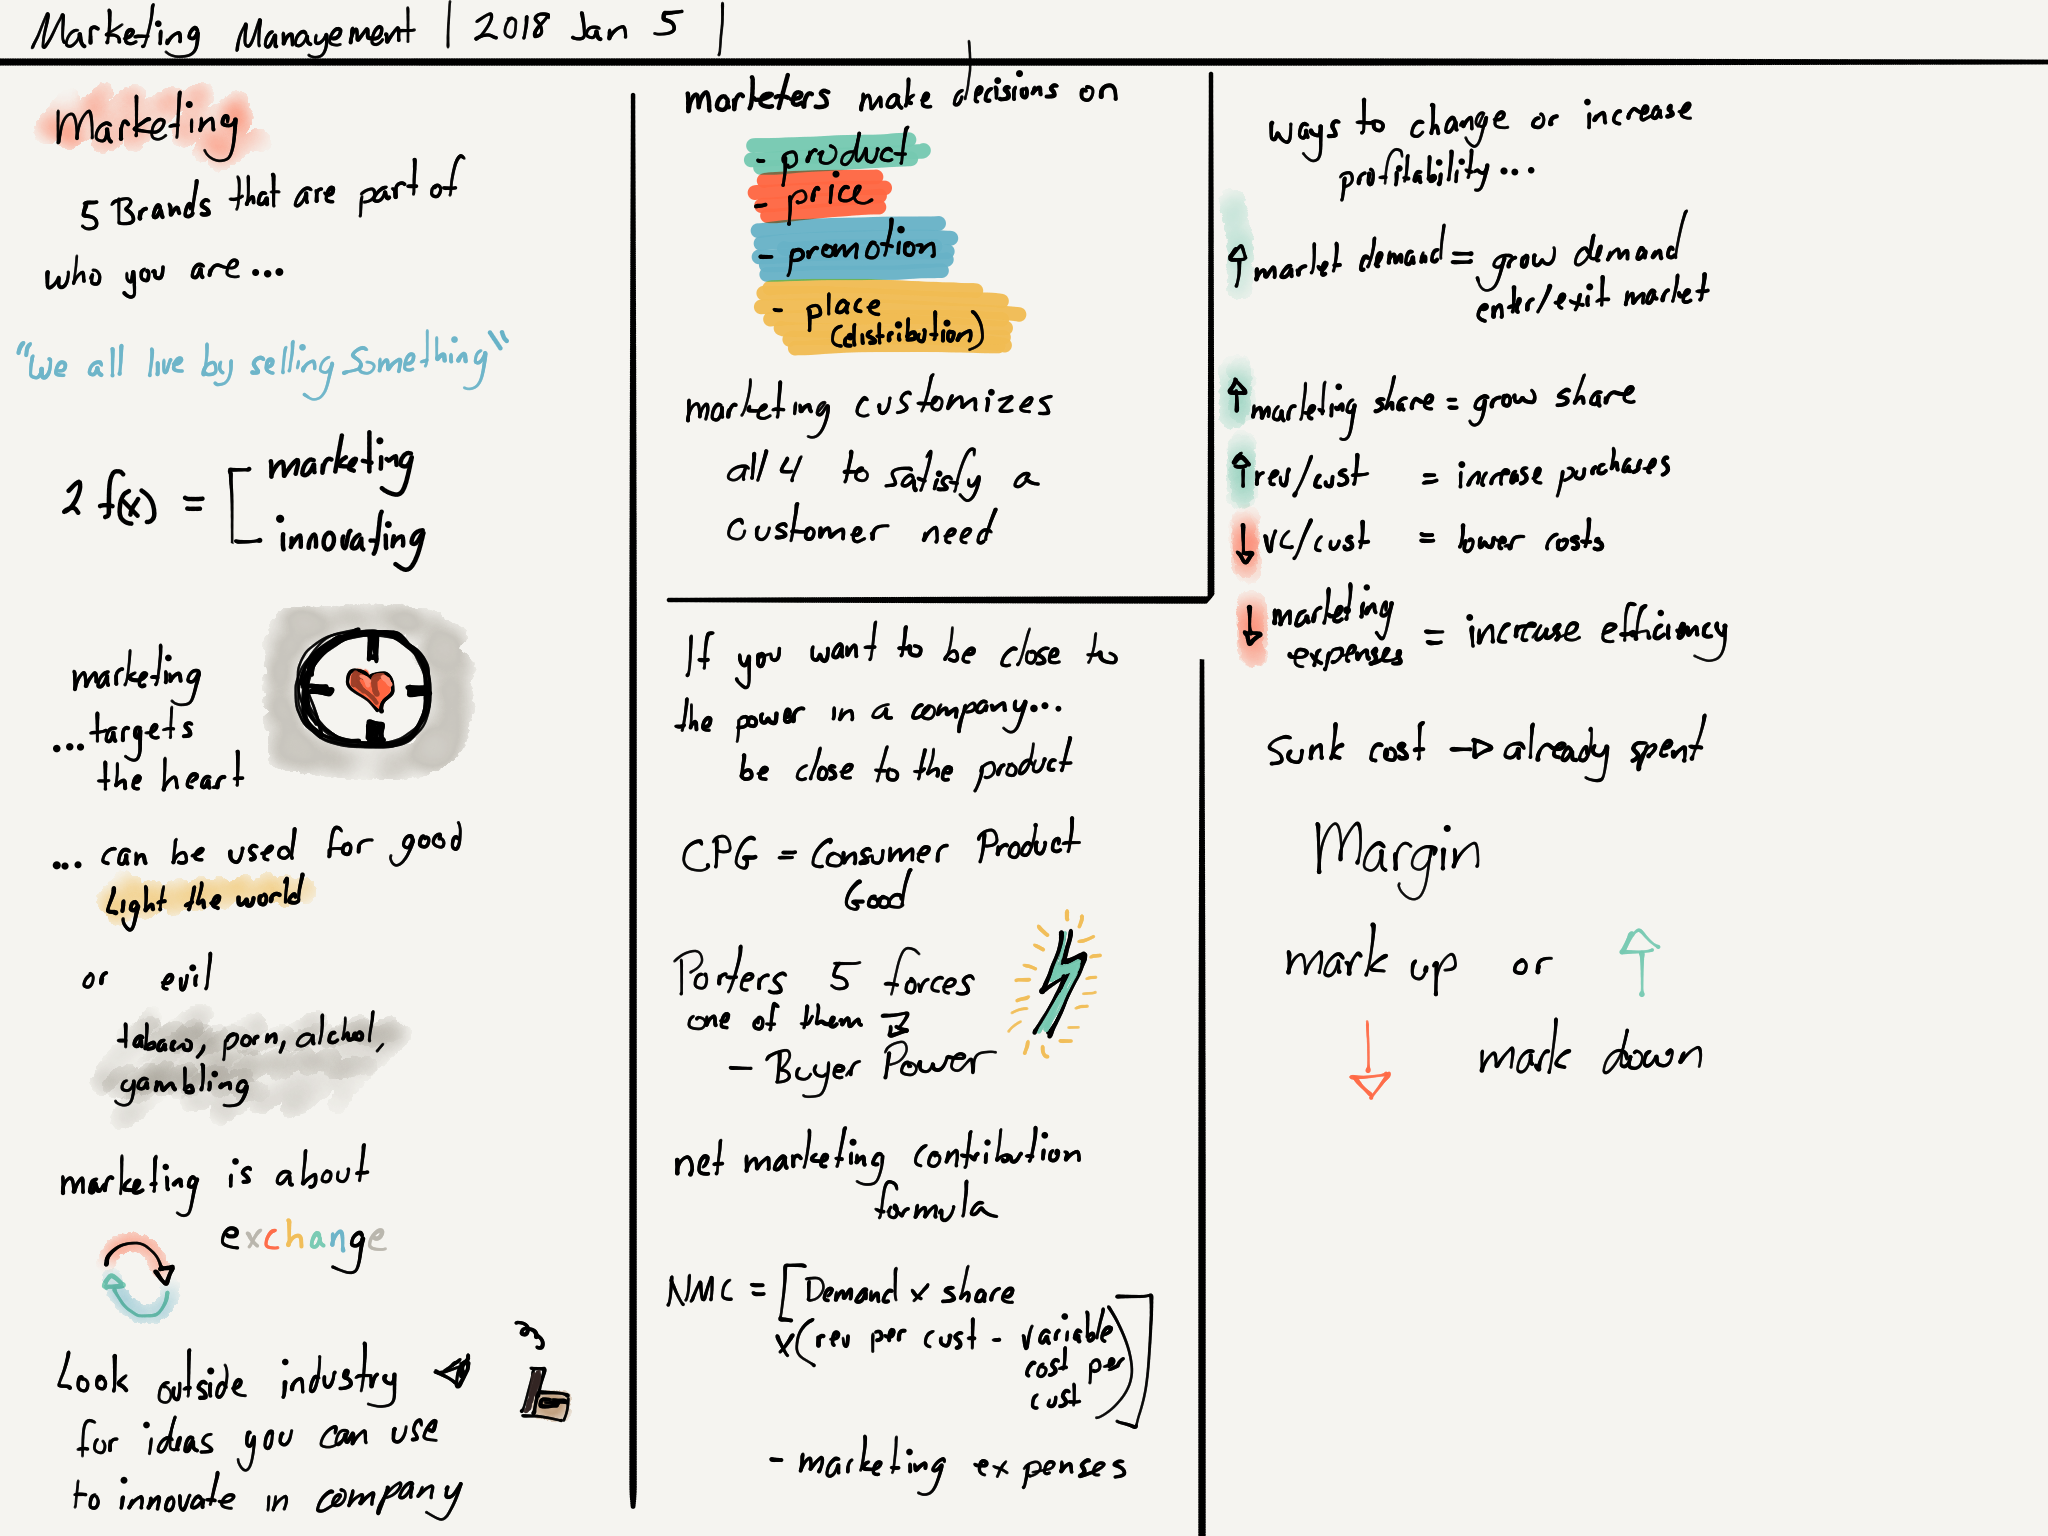 Marketing Management | 2018 Jan 5 |
Marketing
5 Brands that are part of
who you are...
"We all live by selling something"
2 f(x) =
marketing
innovating
marketing
... targets
the heart
... can be used for good
Light the world
or evil
tabaco, porn, alchol,
gambling
marketing is about
exchange
Look outside industry
for ideas you can use
to innovate in company
marketers make decisions on
- product
- price
- promotion
- place
(distribution)
marketing customizes
all 4 to satisfy a
customer need
If you want to be close to
the power in a company...
be close to the product
CPG = Consumer Product
Good
Porters 5 forces
one of them
- Buyer Power
net marketing contribution
formula
NMC = [Demand x share
x(rev per cust - variable
cost per
cust)]
- marketing expenses
ways to change or increase
profitability...
↑ market demand = grow demand
enter/exit market
↑ marketing share = grow share
↑ rev/cust = increase purchases
↓ VC/cust = lower costs
↓ marketing
expenses = increase efficiency
Sunk cost → already spent
Margin
mark up or ↑
↓ mark down